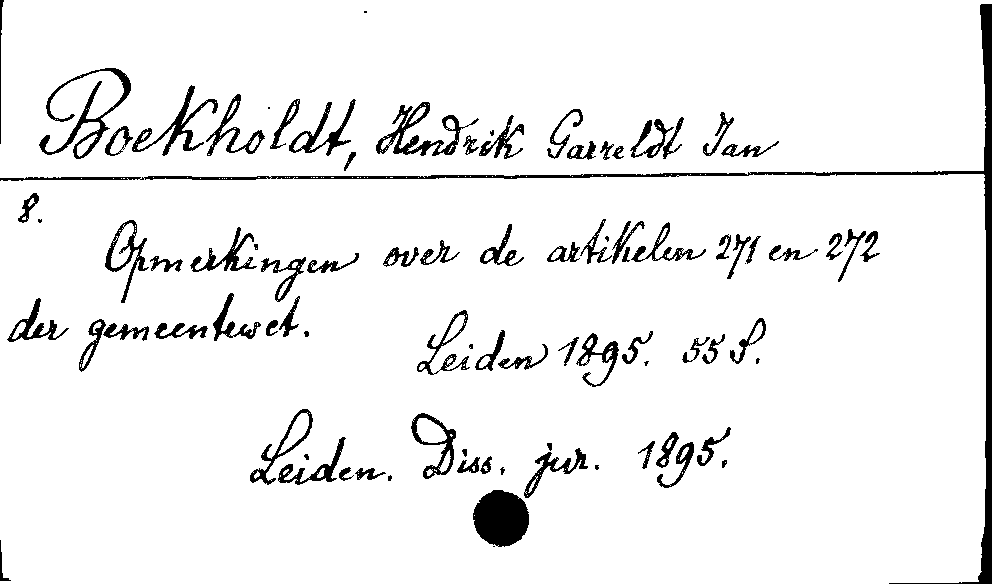 Boekholdt, Hendrik Garreldt Jan
8.
Opmerkingen over de artikelen 271 en 272
der gemeentewet.
Leiden 1895. 55 S.
Leiden. Diss. jur. 1895.